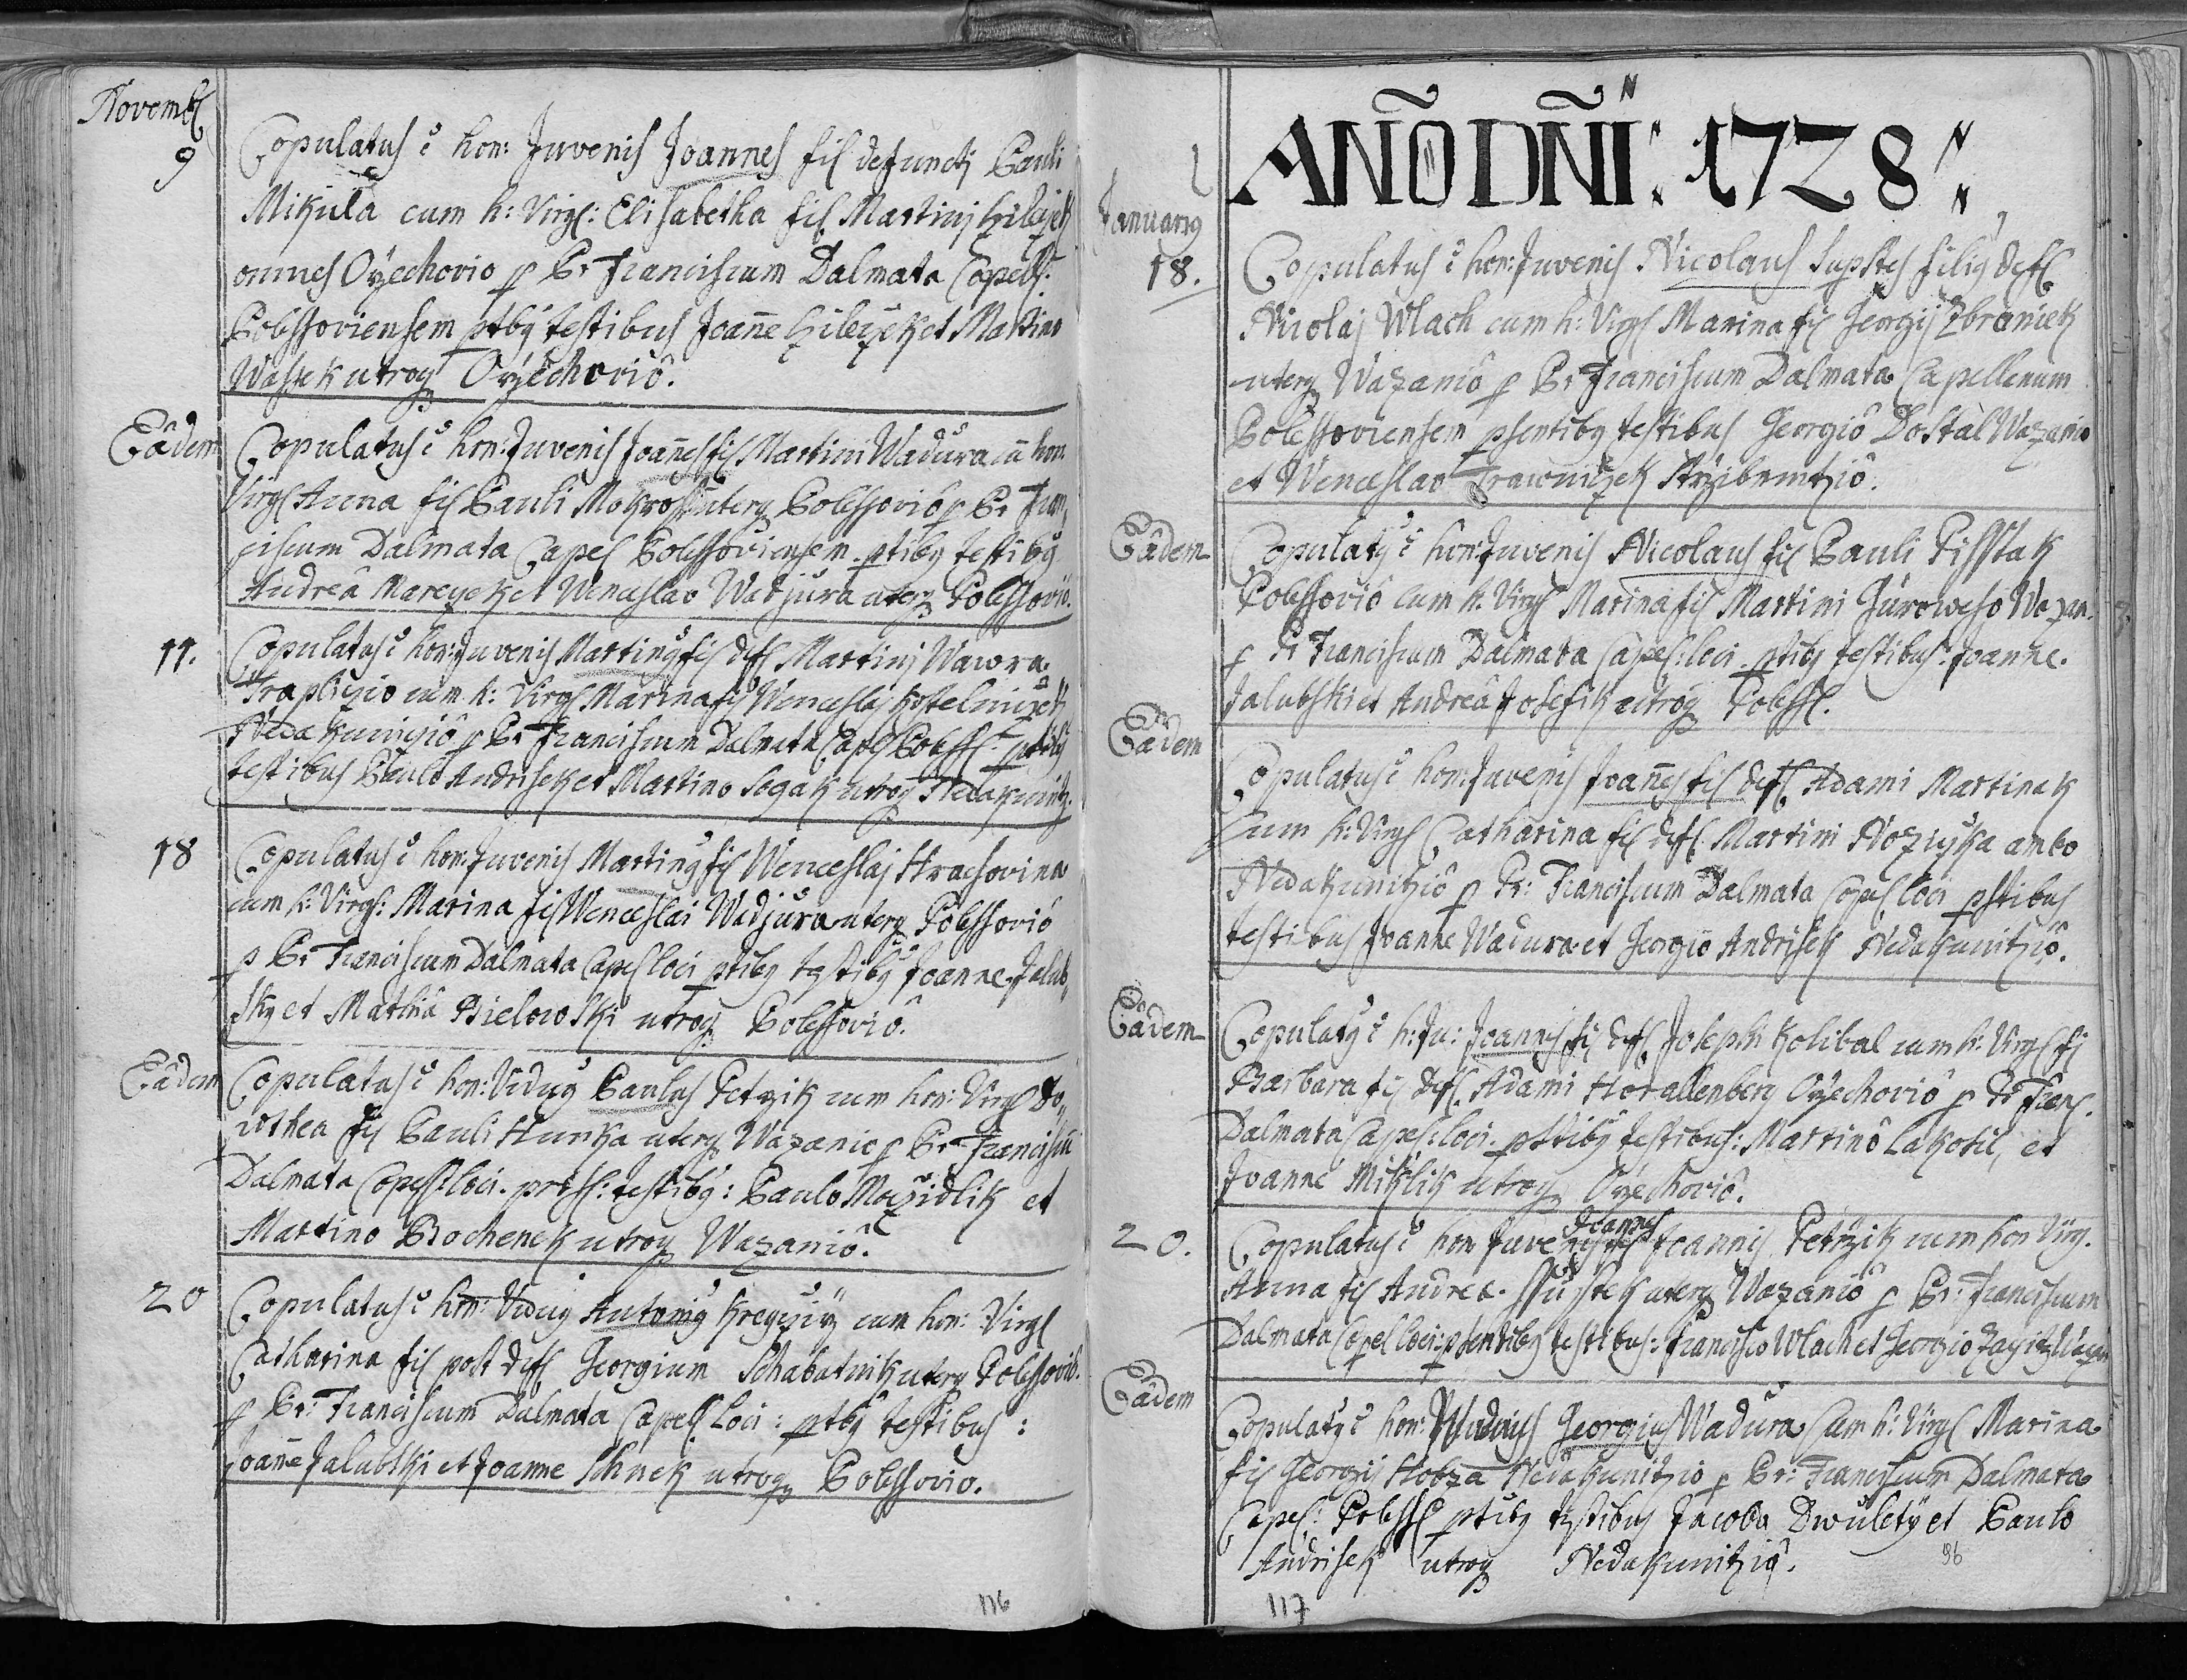 Novemb
9
Copulatus ē hon: Juvenis Joannes fil defuncti Pauli
Mikula cum h: Virg: Elisabetha fil Martini
omnes Orzechovio p Pr Franciscum Dalmata Capell:
Polessoviensem ptbg testibus Joañe et Martino
utroq Orzechoviô.
Eâdem
Copulatus ē hon: Juvenis Joañes fil Martini Wadura cū hon
Virg Anna fil Pauli Mokrosh uterq Polessoviô p Pr Fran,
ciscum Dalmata Capel Polessoviensem ptibg testibg
Andreâ et Wenceslao Wadjura uterq Polessoviô.
11.
Copulatus ē hon: Juvenis Marting fil def Martini Wawra
cum h: Virg Marina fil Wenceslaj
p Pr Franciscum Dalmata Capel Poless: ptibg
testibus Paulo Andrisek et Martino Segak utroq Nedakunitz.
18
Copulatus ē hon: Juvenis Marting fil Wenceslaj Hrachovina
cum h: Virg: Marina fil Wenceslai Wadjura uterq Polessoviô
p Pr Franciscum Dalmata Capel loci ptibg testibg Joanne Jalub,
sky et Mathiâ Bielowski utroq Polessoviô.
Eâdem
Copulatus ē hon: Vidug Paulus Petrzik cum hon: Virg Do,
rothea fil Pauli Hurka uterq Wazanio p Pr Franciscū
Dalmata Capel: loci. press: testibg: Paulo Mazidlik et
Martino Bochenek utroq Wazaniô.
20
Copulatus ē hon: Vidug Antonig cum hon: Virg
Catharina fil post def Georgium Schabatnik uterq Polessoviô.
p Pr: Franciscum Dalmata Capel Loci: ptbg testibus:
Joañe Jalubski et Joanne Schnek utroq Polessovio.
116
AÑO DÑI: 1728:
Januarg
18.
Copulatus ē hon: Juvenis Nicolaus Supstes filig def
Nicolaj Wlach cum h: Virg Marina fil Georgij Zbraniek
uterq Wazaniô p Pr Franciscum Dalmata Capellanum
Polessoviensem psentibg testibus Georgiô Dostàl Wazanio
et Wenceslao Trawniczek
Eâdem
Copulatg ē hon: Juvenis Nicolaus fil Pauli Pisstak
Polessoviô cum h. Virg Marina fil Martini Jùroweho Wazan.
p Pr Franciscum Dalmata Capel: loci ptibg testibus: Joanne.
Jalubski et Andreâ Josefik utroq Poless.
Eâdem
Copulatus ē hon: Juvenis Joañes fil def Adami Martinek
cum h: Virg Catharina fil def Martini ambo
Nedakunitziô p Pr: Franciscum Dalmata Capel loci pstibus
testibus Joanne Wadura et Georgiô Andrisek Nedakunitziô.
Eâdem
Copulatg ē h: Ju: Joannes fil def Josephi Kolibal cum h: Virg fil
Barbara fil def Adami Horallenberg Orzechoviô p Pr Franc.
Dalmata Capel: loci. psttibg testibus: Martinô Lakosil, et
Joanne Miklik utroq Orzechoviô.
20.
Copulatus ē hon Juvenis Joannes fil Joannis Petrzik cum hon Virg.
Anna fil Andreæ. uterq Wazaniô p Pr: Franciscum
Dalmata Capel loci: psentibg testibus: Francisco Wlach et Georgio
Eâdem
Copulatg ē hon: Viduus Georgius Wadura Cum h: Virg Marina
fil Georgii Hobza Nedakunitzio p Pr: Franciscum Dalmata
Capel: Poless ptibg testibus Jacobo Dwulety et Paulo
Andrisek utroq Nedakunitziô.
96
117